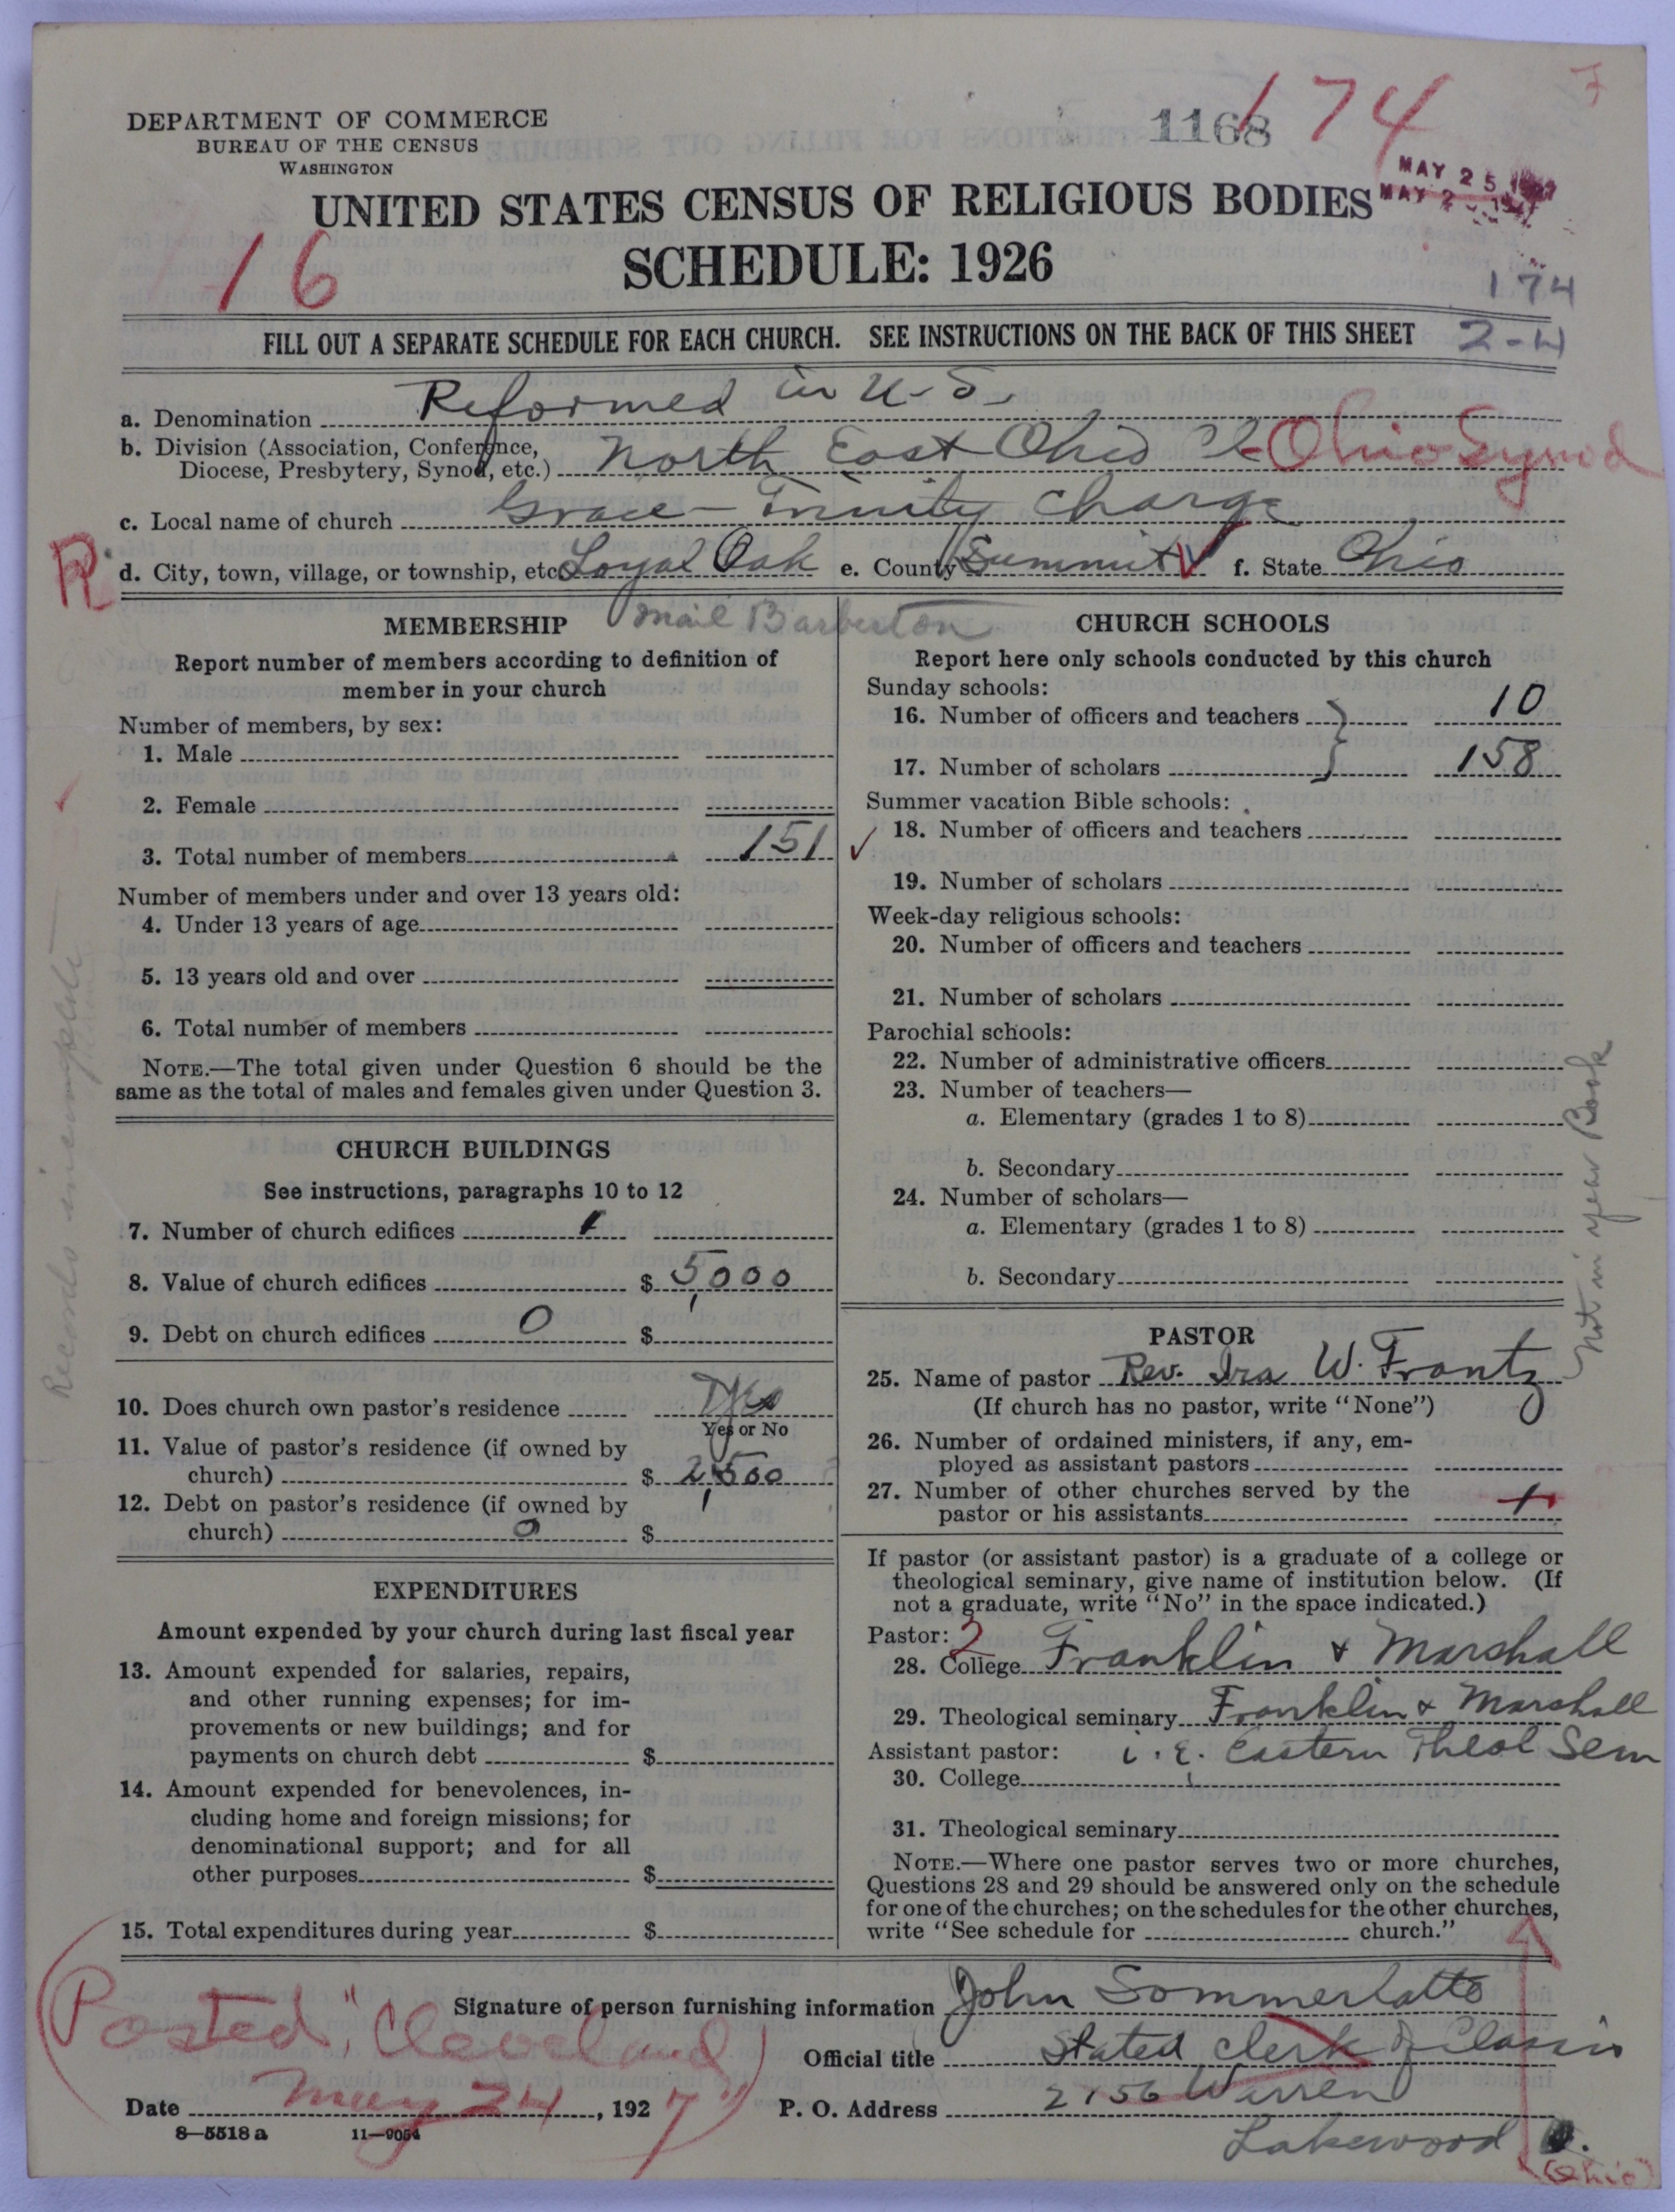 DEPARTMENT OF COMMERCE
BUREAU OF THE CENSUS
WASHINGTON
1168
174
MAY 25
UNITED STATES CENSUS OF RELIGIOUS BODIES
SCHEDULE: 1926
16
174
FILL OUT A SEPARATE SCHEDULE FOR EACH CHURCH. SEE INSTRUCTIONS ON THE BACK OF THIS SHEET
2-4
a. Denomination Reformed in U-S.
b. Division (Association, Conference,
Diocese, Presbytery, Synod, etc.) North East Ohio Cl- Ohio Synod
c. Local name of church Grace-Trinity Charge
R
d. City, town, village, or township, etc Loyal Oak e. County Summit f. State Ohio
mail Barberton
MEMBERSHIP
Report number of members according to definition of
member in your church
Number of members, by sex:
1. Male
2. Female
3. Total number of members 151
Number of members under and over 13 years old:
4. Under 13 years of age
5. 13 years old and over
6. Total number of members
NOTE.—The total given under Question 6 should be the
same as the total of males and females given under Question 3.
Records incomplete
CHURCH BUILDINGS
See instructions, paragraphs 10 to 12
7. Number of church edifices 1
8. Value of church edifices $ 5,000
9. Debt on church edifices 0 $
10. Does church own pastor's residence Yes
Yes or No
11. Value of pastor's residence (if owned by
church) $ 2,500
12. Debt on pastor's residence (if owned by
church) 0 $
EXPENDITURES
Amount expended by your church during last fiscal year
13. Amount expended for salaries, repairs,
and other running expenses; for im-
provements or new buildings; and for
payments on church debt $
14. Amount expended for benevolences, in-
cluding home and foreign missions; for
denominational support; and for all
other purposes $
15. Total expenditures during year $
CHURCH SCHOOLS
Report here only schools conducted by this church
Sunday schools:
16. Number of officers and teachers 10
17. Number of scholars 158
Summer vacation Bible schools:
18. Number of officers and teachers
19. Number of scholars
Week-day religious schools:
20. Number of officers and teachers
21. Number of scholars
Parochial schools:
22. Number of administrative officers
23. Number of teachers—
a. Elementary (grades 1 to 8)
b. Secondary
24. Number of scholars—
a. Elementary (grades 1 to 8)
b. Secondary
Not in year Book
PASTOR
25. Name of pastor Rev. Ira W. Frantz
(If church has no pastor, write "None")
26. Number of ordained ministers, if any, em-
ployed as assistant pastors
27. Number of other churches served by the
pastor or his assistants 1
If pastor (or assistant pastor) is a graduate of a college or
theological seminary, give name of institution below. (If
not a graduate, write "No" in the space indicated.)
Pastor: 2
28. College Franklin & Marshall
29. Theological seminary Franklin & Marshall
Assistant pastor: i.e. Eastern Theol Sem
30. College
31. Theological seminary
NOTE.—Where one pastor serves two or more churches,
Questions 28 and 29 should be answered only on the schedule
for one of the churches; on the schedules for the other churches,
write "See schedule for church."
Signature of person furnishing information John Sommerlatte
Official title Stated Clerk of Classis
(Posted, "Cleveland
Date May 24, 1927")
P. O. Address 2156 Warren
Lakewood O.
(Ohio)
8—5518 a 11—9054